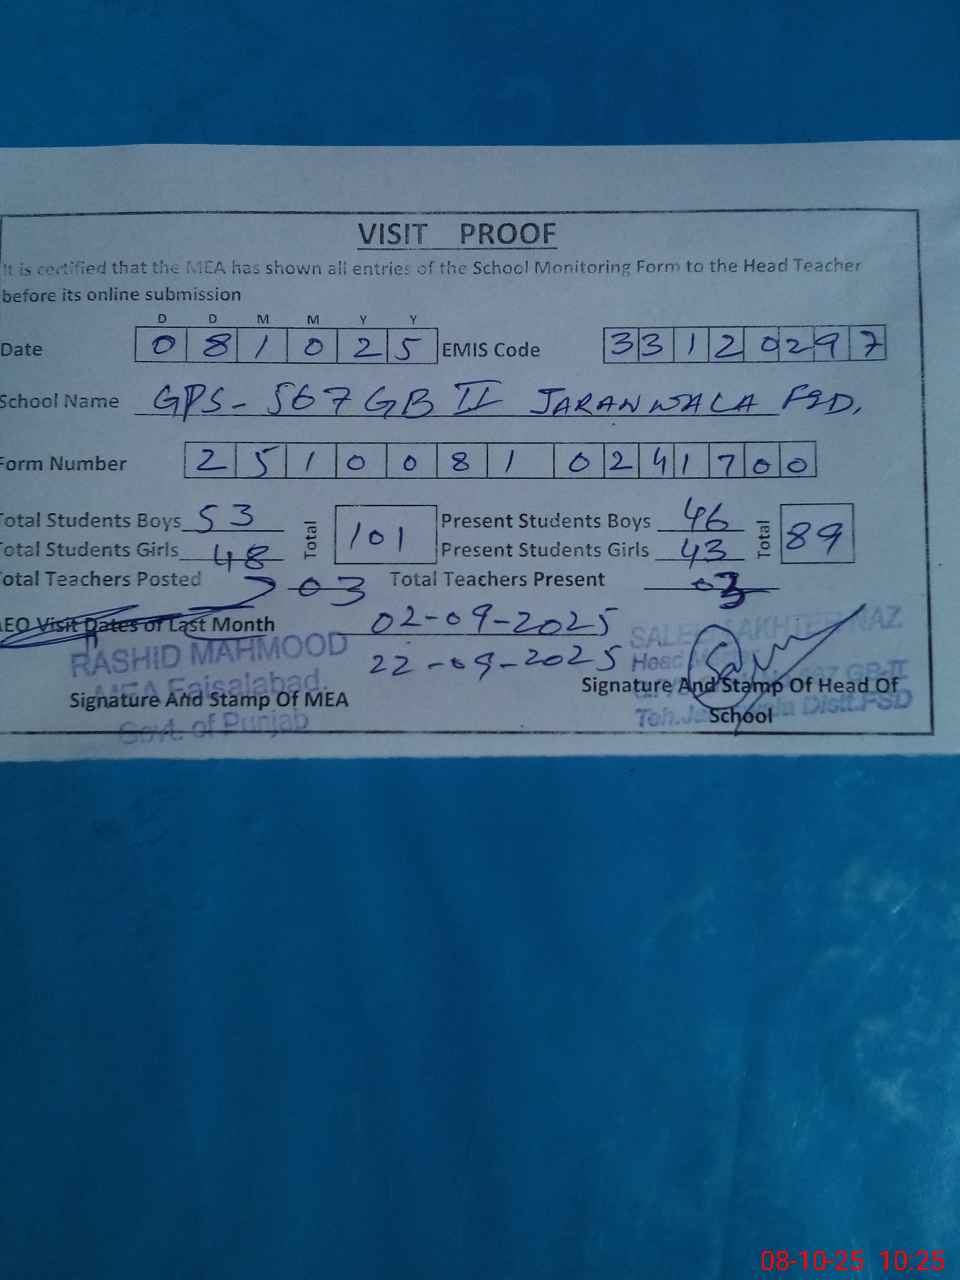 VISIT PROOF
It is certified that the MEA has shown all entries of the School Monitoring Form to the Head Teacher
before its online submission
D D M M Y Y
Date 0 8 1 0 2 5 EMIS Code 3 3 1 2 0 2 9 7
School Name GPS - 567 GB II JARANWALA FSD.
Form Number 2 5 1 0 0 8 1 0 2 4 1 7 0 0
Total Students Boys 53 Total 101 Present Students Boys 46 Total 89
Total Students Girls 48 Present Students Girls 43
Total Teachers Posted 03 Total Teachers Present 03
AEO Visit Dates of Last Month 02-09-2025
22-09-2025
RASHID MAHMOOD
MEA Faisalabad.
Govt. of Punjab
Signature And Stamp Of MEA
Head
GB-II
Distt.FSD
Signature And Stamp Of Head Of
School
08-10-25 10:25